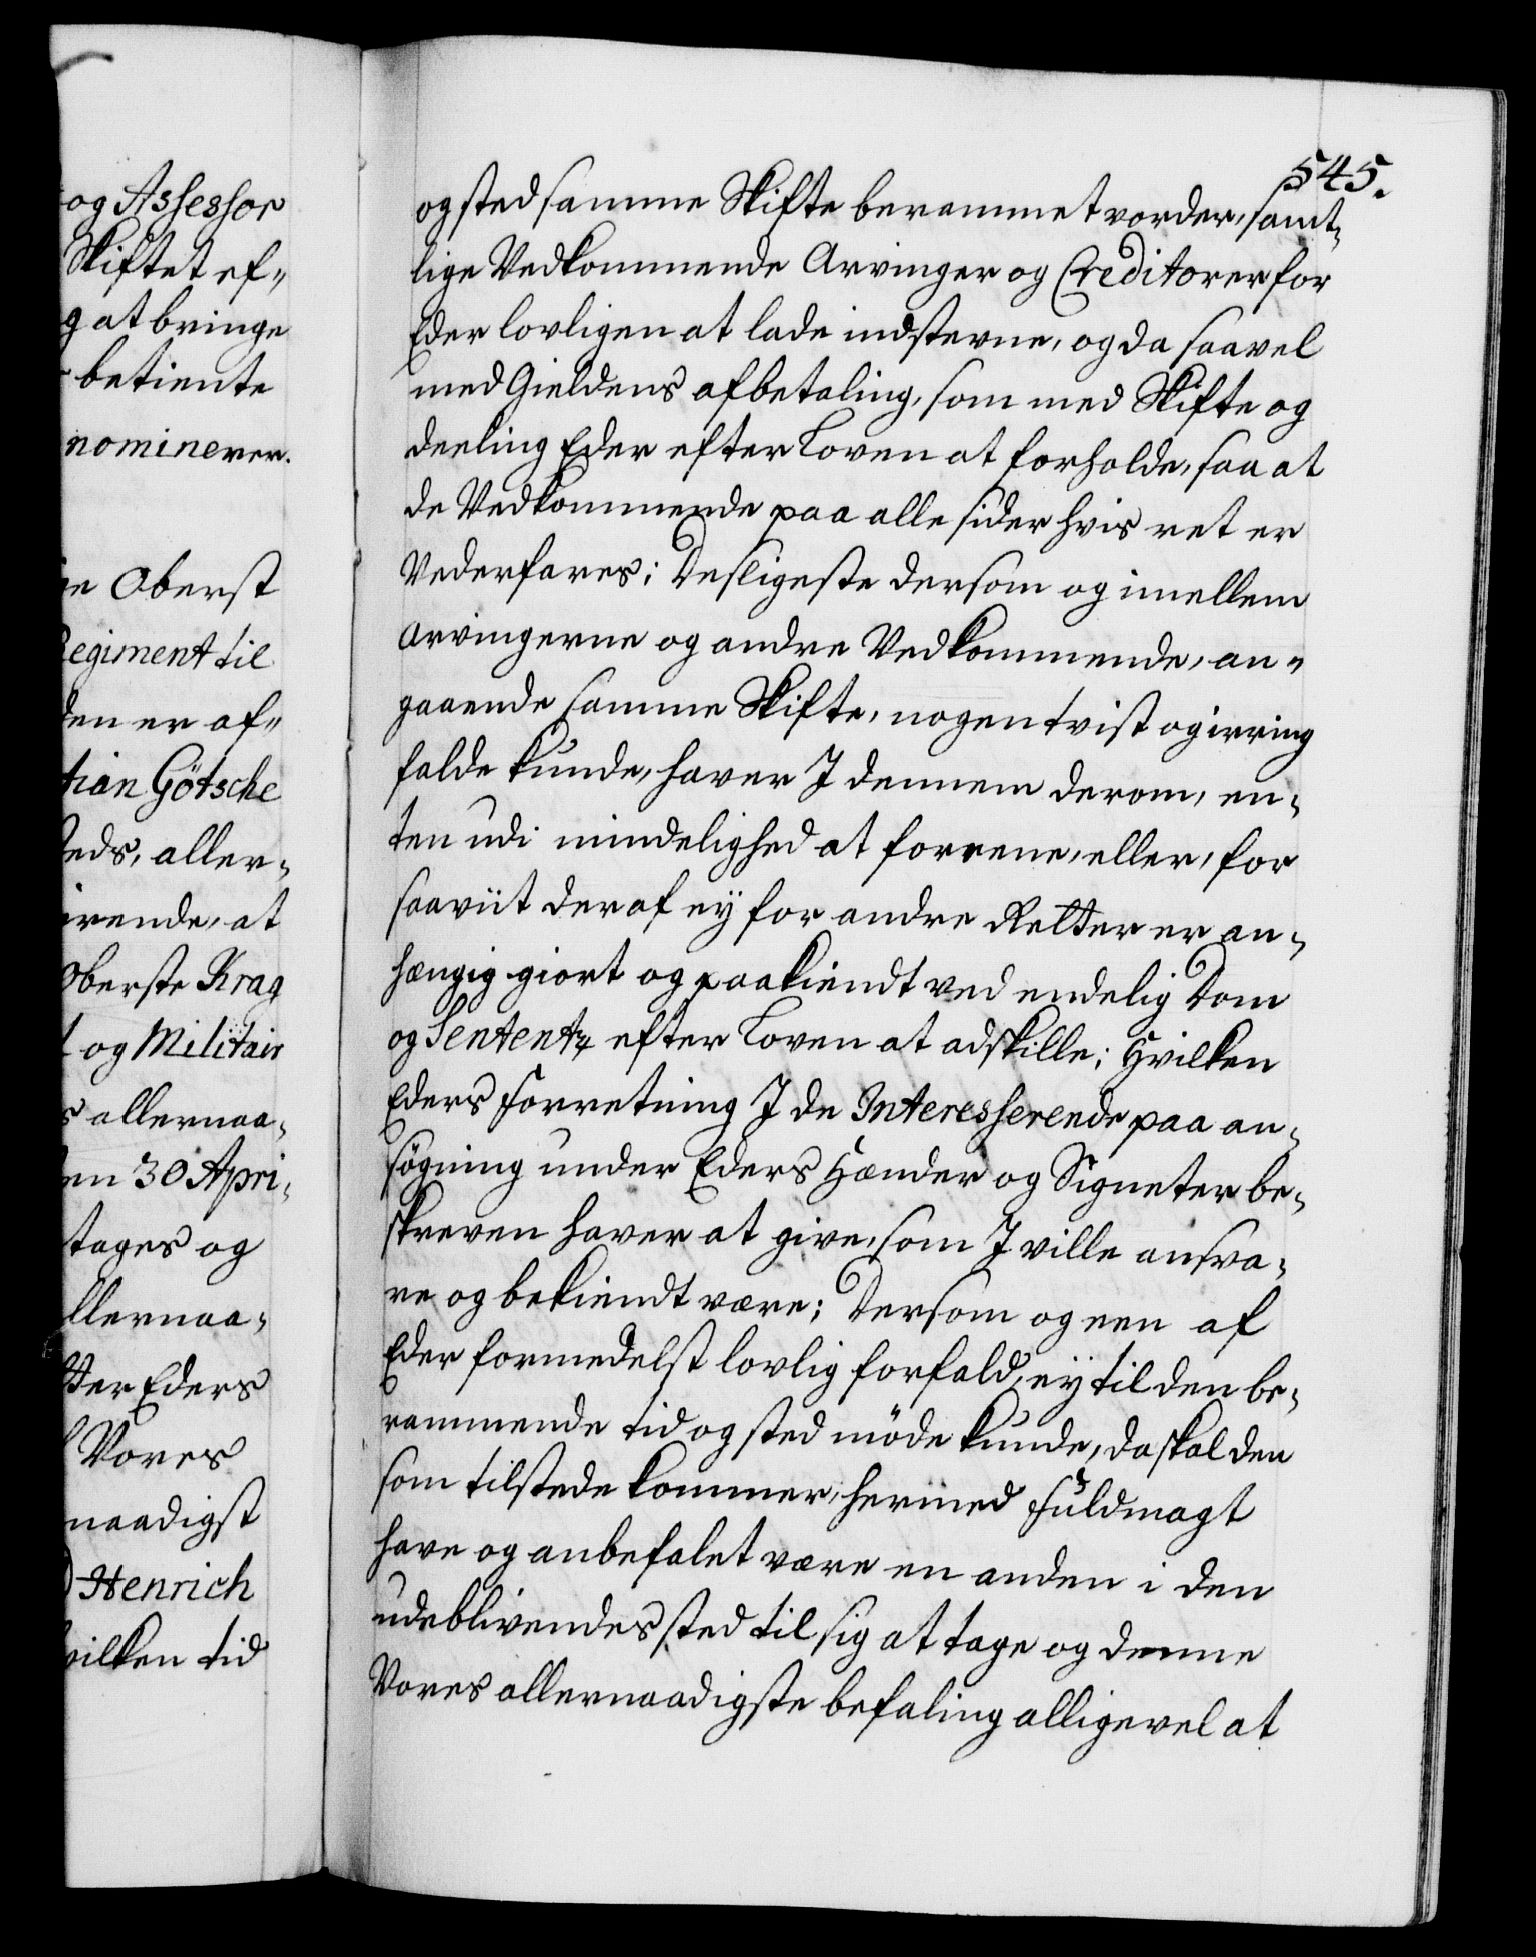 og Assessor
Skiftet ef„
g at bringe
betiente
nominerer.
Oberst
Regiment til
den er af„
tian Götsche
steds, aller„
irende, at
Oberste Krag
og Militair
s allernaa„
en 30 Apri„
tages og
llernaa„
Eders
Vores
naadigst
Henrich
hvilken tid
545.
og sted samme Skifte berammet vorder, samt„
lige Vedkommende Arvinger og Creditorer for
Eder lovligen at lade indstevne, og da saavel
med Gieldens afbetaling, som med Skifte og
deeling Eder efter Loven at forholde, saa at
de Vedkommende paa alle sider hvis ret er
Vederfares; Desligeste dersom og imellem
Arvingerne og andre Vedkommende, an„
gaaende samme Skifte, nogen tvist og irring
falde kunde, haver I dennem derom, en„
ten udi mindelighed at forrene, eller, for
saaviit deraf eÿ for andre Retter er an„
hængig giort og paakiendt ved endelig Dom
og Sententz efter Loven at adskille; Hvilken
Eders Forretning I de Interesserende paa an„
søgning under Eders Hænder og Signeter be„
skreven haver at give, som I ville ansva„
re og bekiendt være; Dersom og een af
Eder formedelst lovlig forfald, eÿ til den be„
rammende tid og sted møde kunde, da skal den
som tilstede kommer, hermed Fuldmagt
have og anbefalet være en anden i den
udeblivendes sted til sig at tage og denne
Vores allernaadigste befaling alligevel at